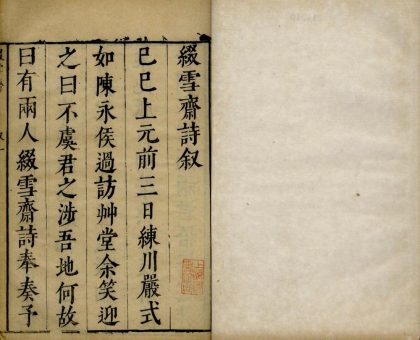 綴雪齋詩叙
己巳上元前三日練川嚴式
如陳永侯過訪艸堂余笑迎
之曰不虞君之涉吾地何故
曰有兩人綴雪齋詩奉奏予